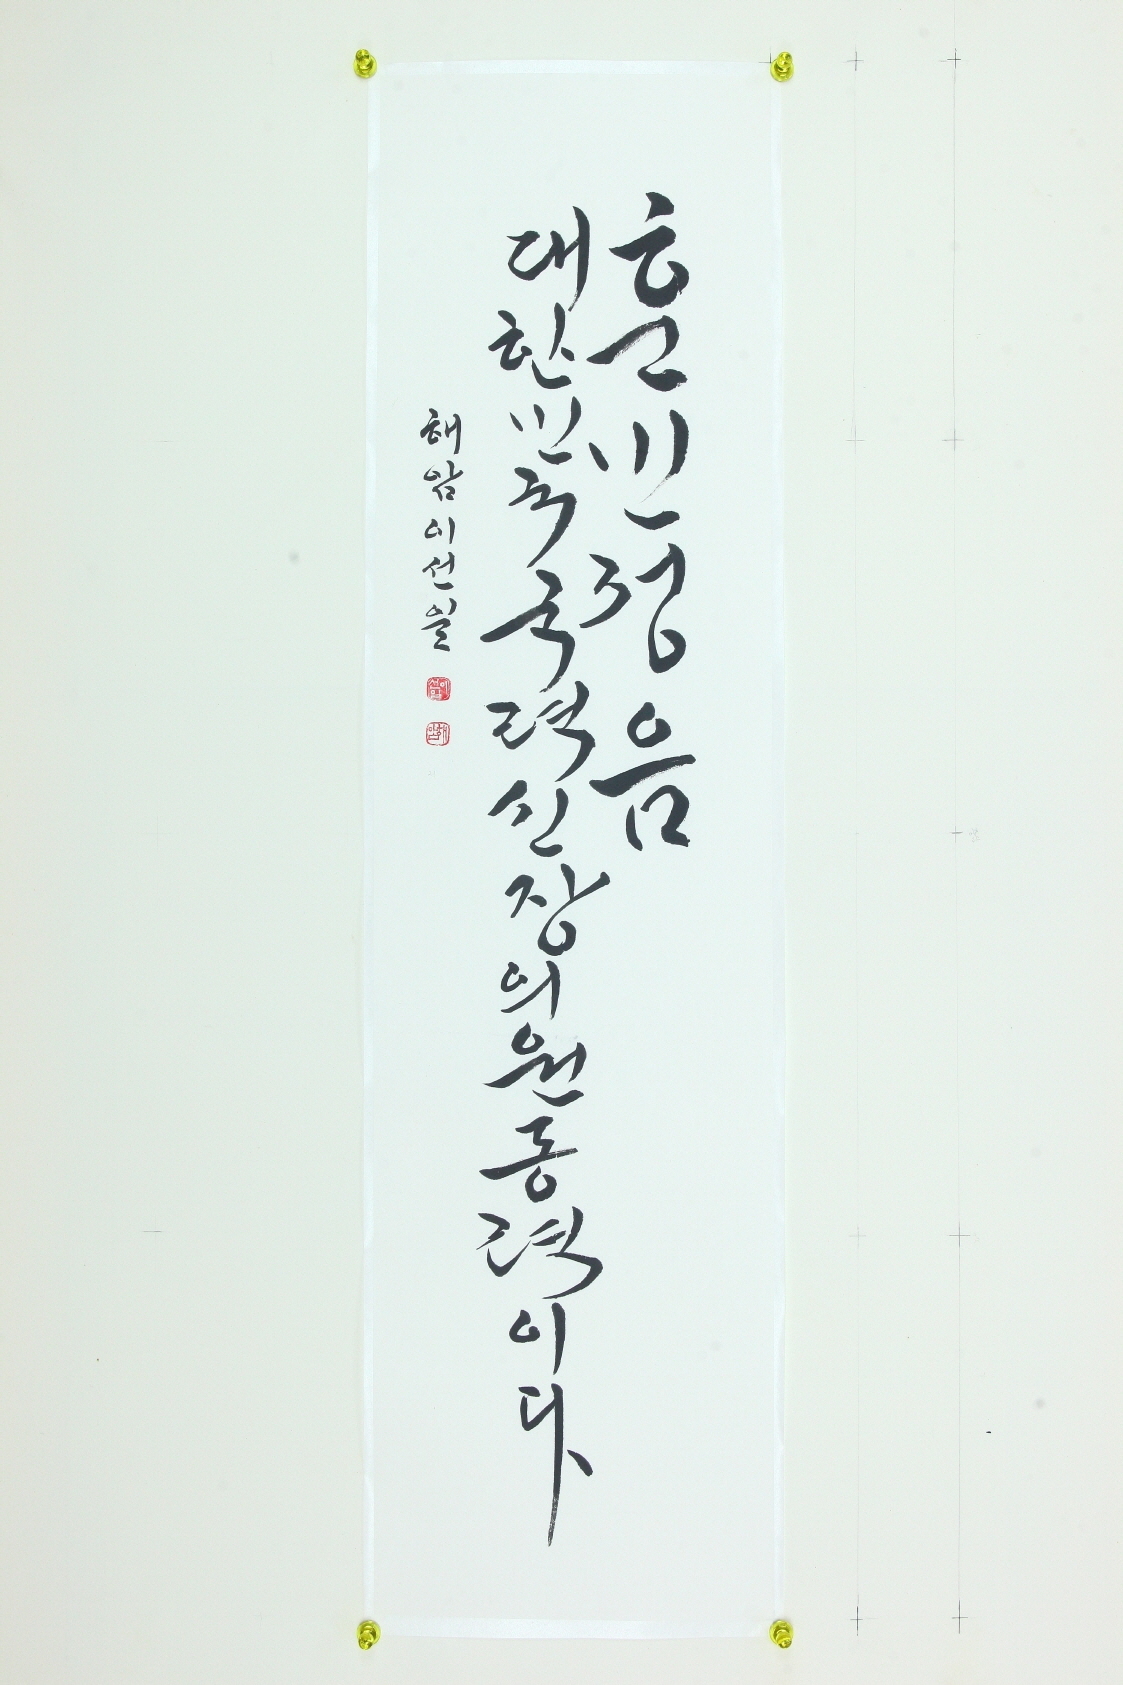 훈민정음
대한민국국력신장의원동력이다
해암이선